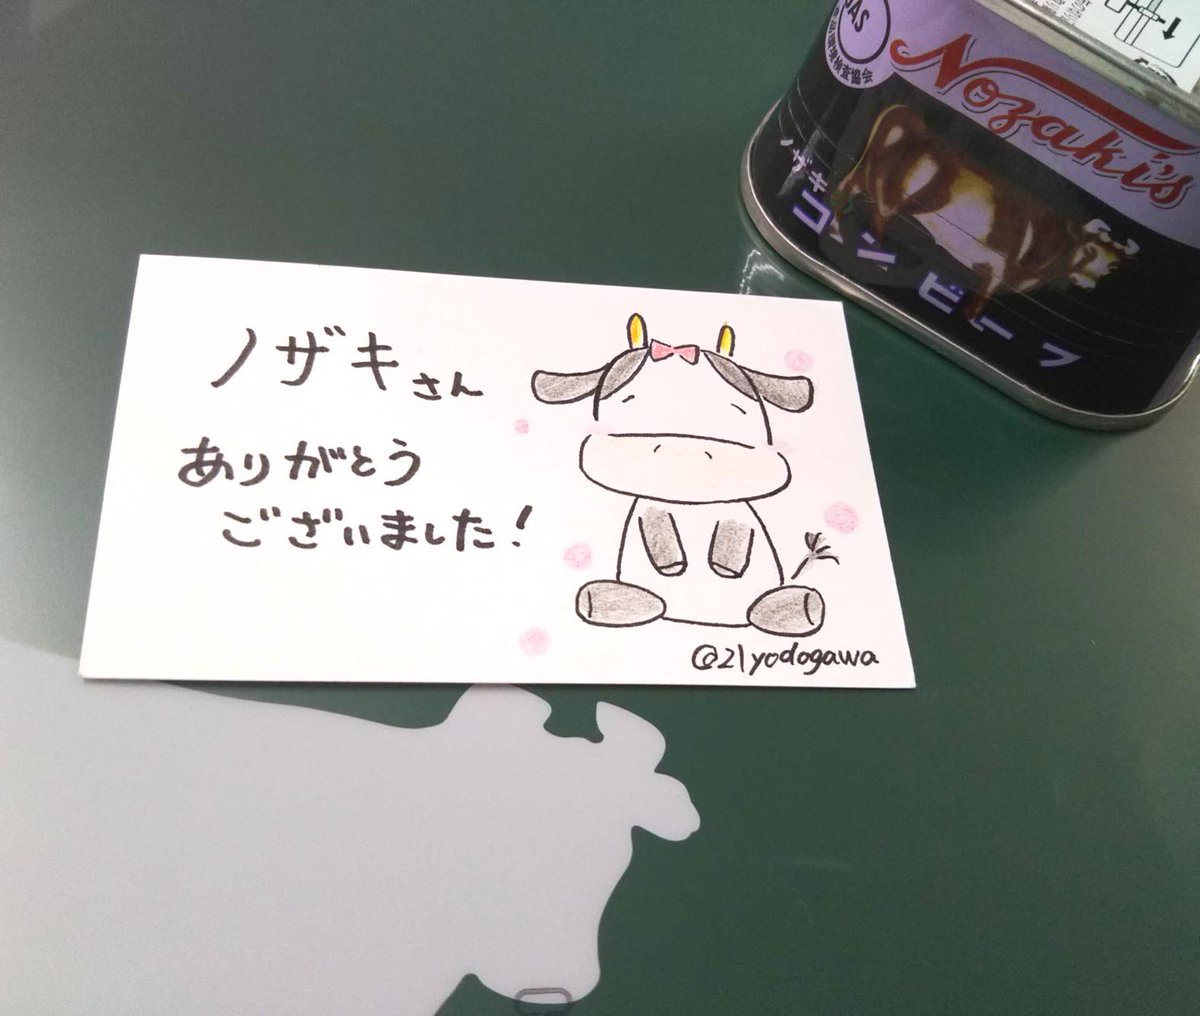 JAS
検査協会
Nozaki's
ノザキ
コンビーフ
ノザキさん
ありがとう
ございました!
@21yodogawa